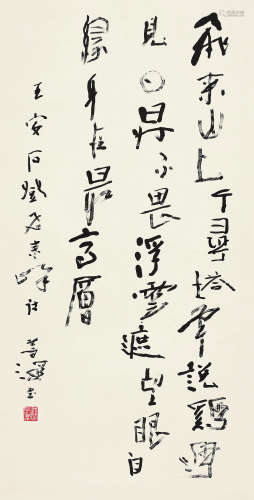 飛来山上千尋塔聞說鷄鳴
見日昇不畏浮雲遮望眼自
緣身在最高層
王安石登飛来峰詩